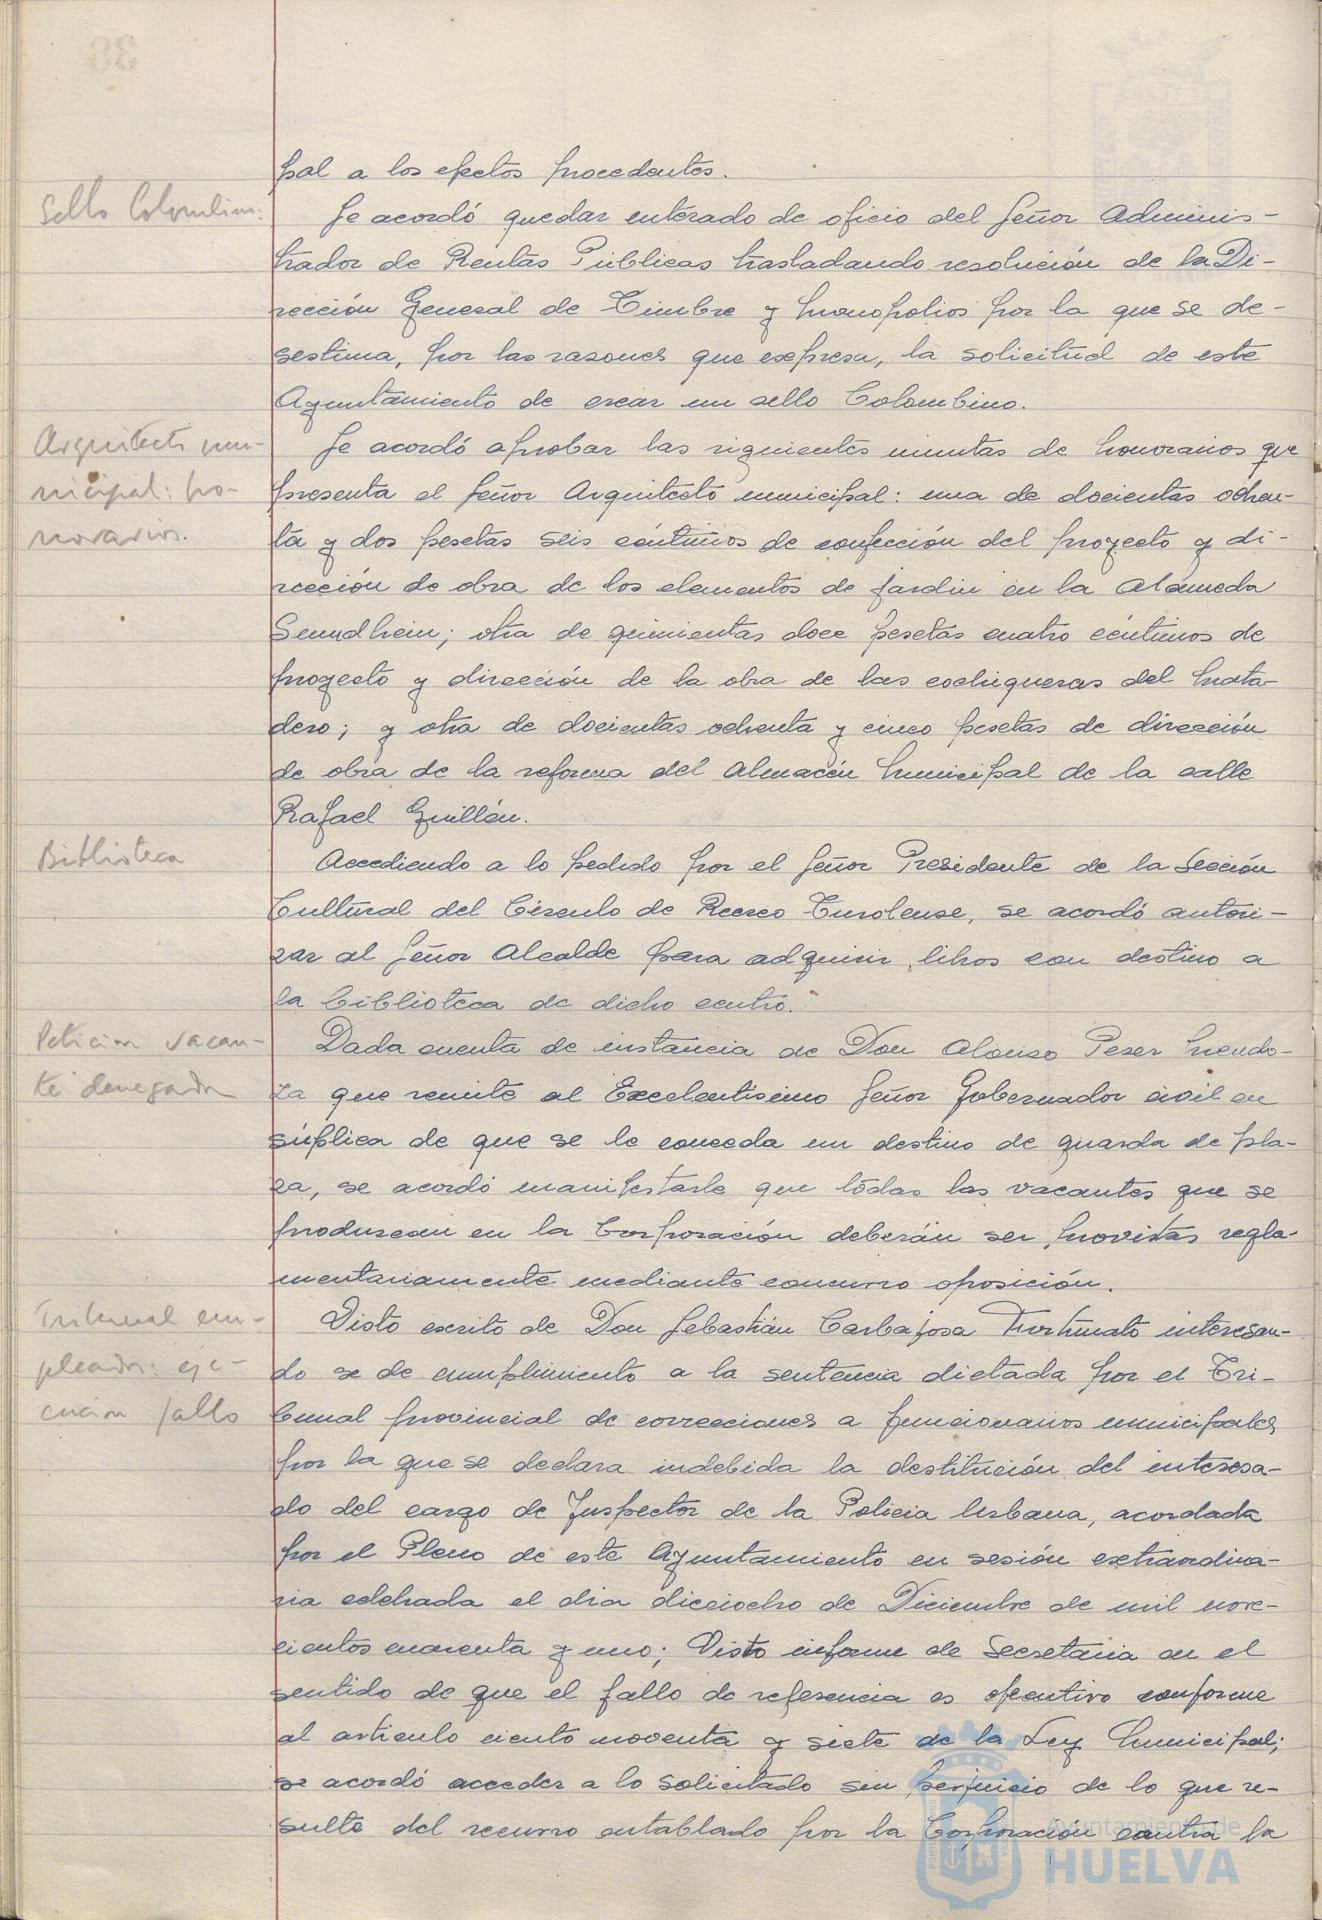 pal a los efectos procedentes.
Sello Colombino:
Se acordó quedar enterado de oficio del Señor Adminis-
trador de Rentas Públicas trasladando resolución de la Di-
rección General de Timbre y Monopolios por la que se de-
sestima, por las razones que expresa, la solicitud de este
Ayuntamiento de crear un sello Colombino.
Arquitecto mu-
nicipal: ho-
norarios.
Se acordó aprobar las siguientes minutas de honorarios que
presenta el Señor Arquitecto municipal: una de docientas ochen-
ta y dos pesetas seis céntimos de confección del proyecto y di-
rección de obra de los elementos de jardin en la Alameda
Sundhein; otra de quinientas doce pesetas cuatro céntimos de
proyecto y dirección de la obra de las cochiqueras del Mata-
dero; y otra de docientas ochenta y cinco pesetas de dirección
de obra de la reforma del Almacén Municipal de la calle
Rafael Guillén.
Biblioteca
Accediendo a lo pedido por el Señor Presidente de la Sección
Cultural del Círculo de Recreo Turolense, se acordó autori-
zar al Señor Alcalde para adquirir libros con destino a
la biblioteca de dicho centro.
Peticion vacan-
te denegada
Dada cuenta de instancia de Don Alonso Peser Mendo-
za que remite al Excelentisimo Señor Gobernador civil en
súplica de que se le conceda un destino de guarda de pla-
za, se acordó manifestarle que todas las vacantes que se
produzcan en la Corporación deberán ser provistas regla-
mentariamente mediante concurso oposición.
Tribunal em-
pleados: eje-
cucion fallo
Visto escrito de Don Sebastián Carbajosa Fortunato interesan-
do se de cumplimiento a la sentencia dictada por el Tri-
bunal provincial de correcciones a funcionarios municipales
por la que se declara indebida la destitución del interesa-
do del cargo de Inspector de la Policia Urbana, acordada
por el Pleno de este Ayuntamiento en sesión extraordina-
ria celebrada el dia dieciocho de Diciembre de mil nove-
cientos cuarenta y uno; Visto informe de Secretaria en el
sentido de que el fallo de referencia es ejecutivo conforme
al articulo ciento noventa y siete de la Ley Municipal;
se acordó acceder a lo solicitado sin perjuicio de lo que re-
sulte del recurso entablado por la Corporación contra la
Ayuntamiento de
HUELVA